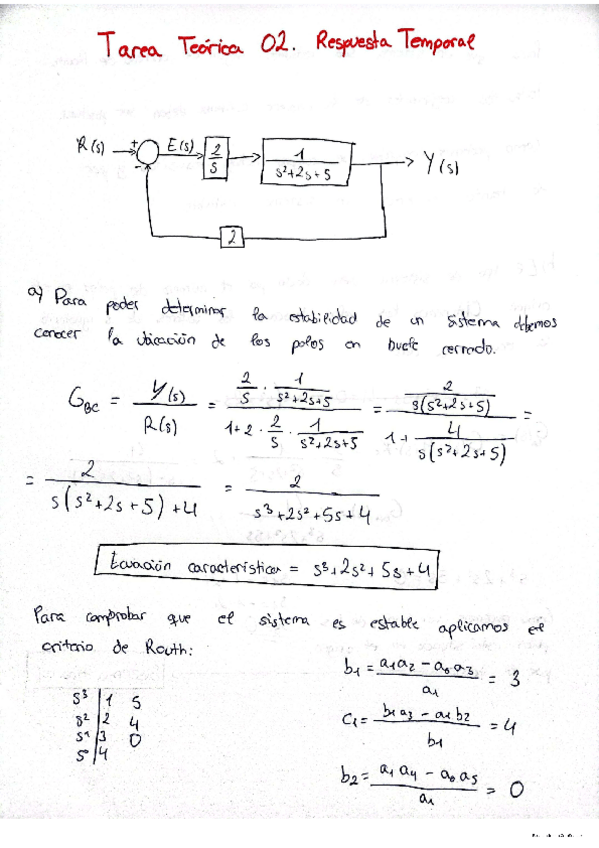 Tarea Teórica 02. Respuesta Temporal
R(s) + - E(s) 2/s 1/(s²+2s+5) Y(s)
2
a) Para poder determinar la estabilidad de un sistema debemos
conocer la ubicación de los polos en bucle cerrado.
G_BC = Y(s)/R(s) = (2/s · 1/(s²+2s+5))/(1+2 · 2/s · 1/(s²+2s+5)) = (2/(s(s²+2s+5)))/(1+ 4/(s(s²+2s+5))) =
= 2/(s(s²+2s+5)+4) = 2/(s³+2s²+5s+4)
Ecuación característica = s³+2s²+5s+4
Para comprobar que el sistema es estable aplicamos el
criterio de Routh:
s³ | 1 5
s² | 2 4
s¹ | 3 0
s⁰ | 4
b₁ = (a₁a₂ - a₀a₃)/a₁ = 3
c₁ = (b₁a₃ - a₁b₂)/b₁ = 4
b₂ = (a₁a₄ - a₀a₅)/a₁ = 0